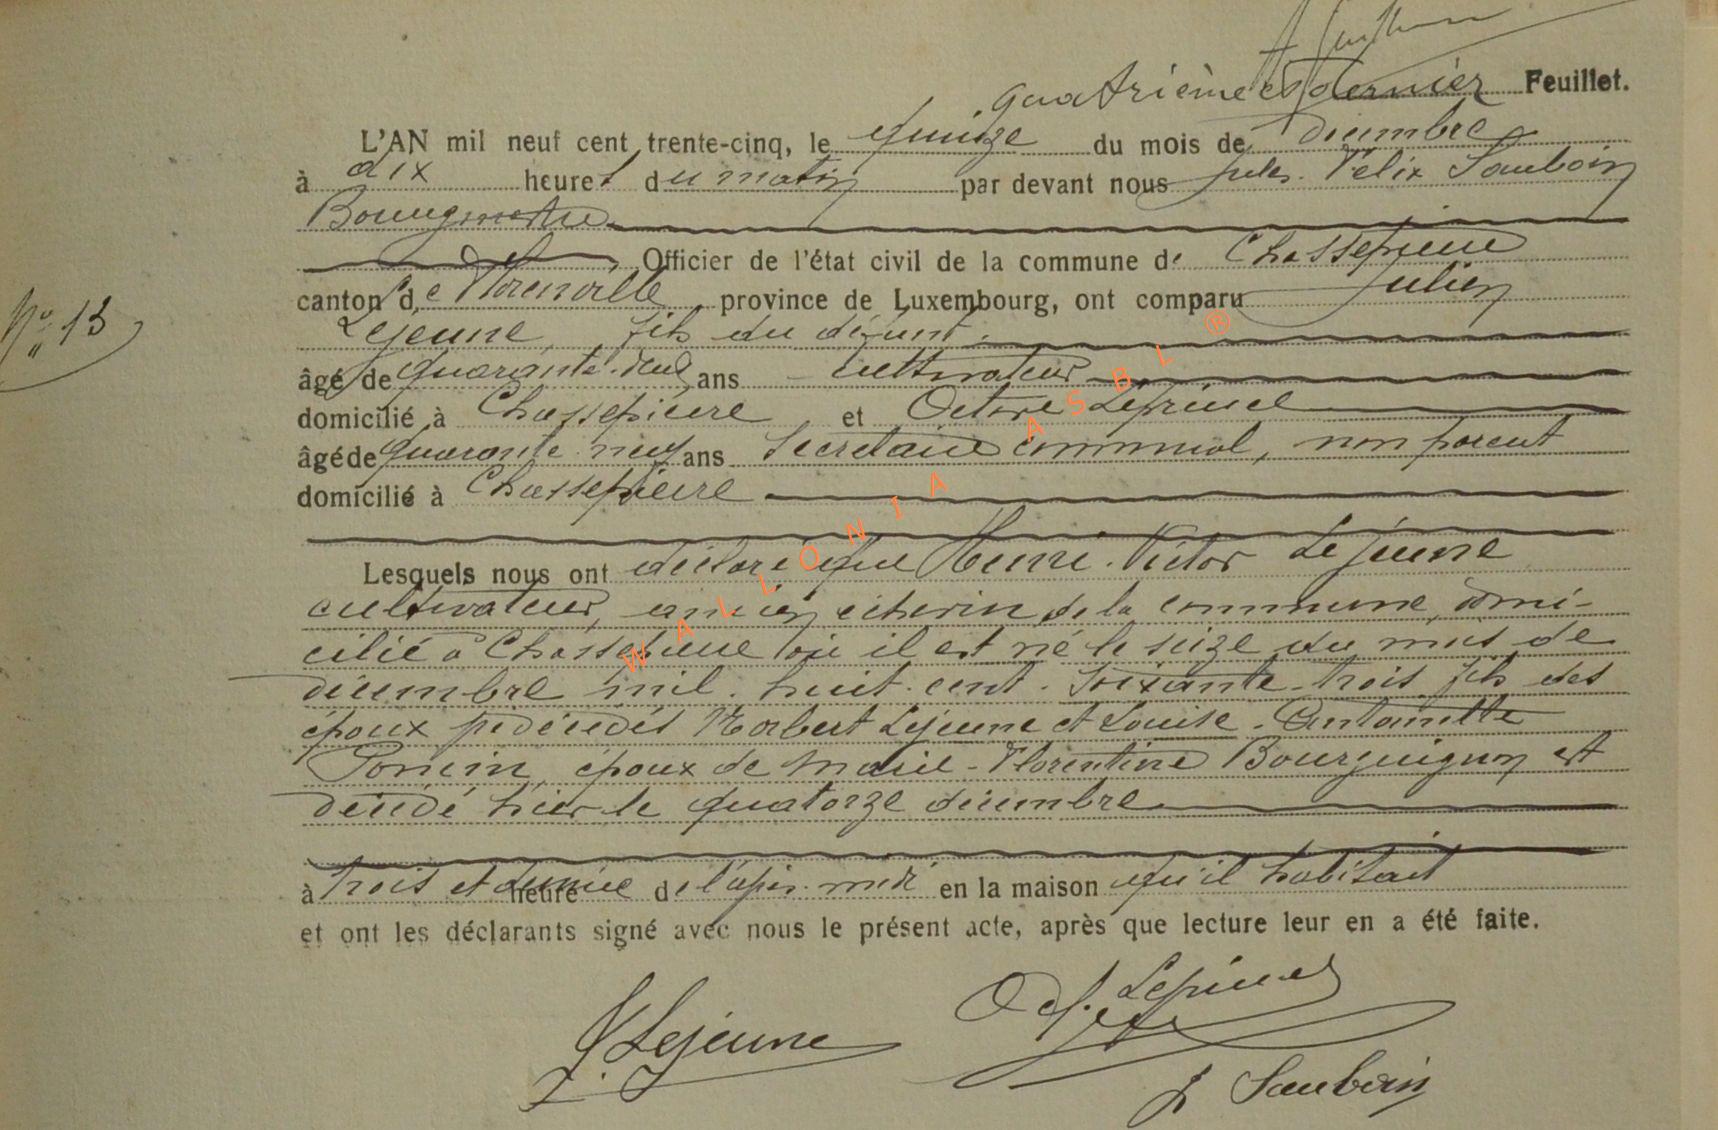 quatrième et dernier Feuillet.
L'AN mil neuf cent trente-cinq, le quinze du mois de décembre
à dix heures du matin par devant nous Jules-Félix Sauboin
Bourgmestre
Officier de l'état civil de la commune de Chassepierre
canton de Florenville province de Luxembourg, ont comparu Julien
Lejeune, fils du défunt
N° 13
âgé de quarante-deux ans cultivateur
domicilié à Chassepierre et Octave Leprince
âgé de quarante neuf ans Secrétaire communal, non parent
domicilié à Chassepierre
Lesquels nous ont déclaré que Henri-Victor Lejeune
cultivateur, ancien échevin de la commune, domi-
cilié à Chassepierre où il est né le seize du mois de
décembre mil-huit-cent-soixante-trois fils des
époux prédécédés Norbert Lejeune et Louise-Antoinette
Poncin, époux de Marie-Florentine Bourguignon est
décédé hier le quatorze décembre
à trois et demie heure de l'après-midi en la maison qu'il habitait
et ont les déclarants signé avec nous le présent acte, après que lecture leur en a été faite.
J Lejeune
Leprince
J Sauboin
WALLONIA ASBL ®